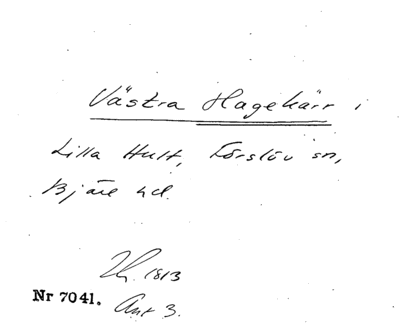 Västra Hagekärr i
Lilla Hult, Förslöv sn,
Bjäre hd.
1813
Nr 7041. Akt 3.